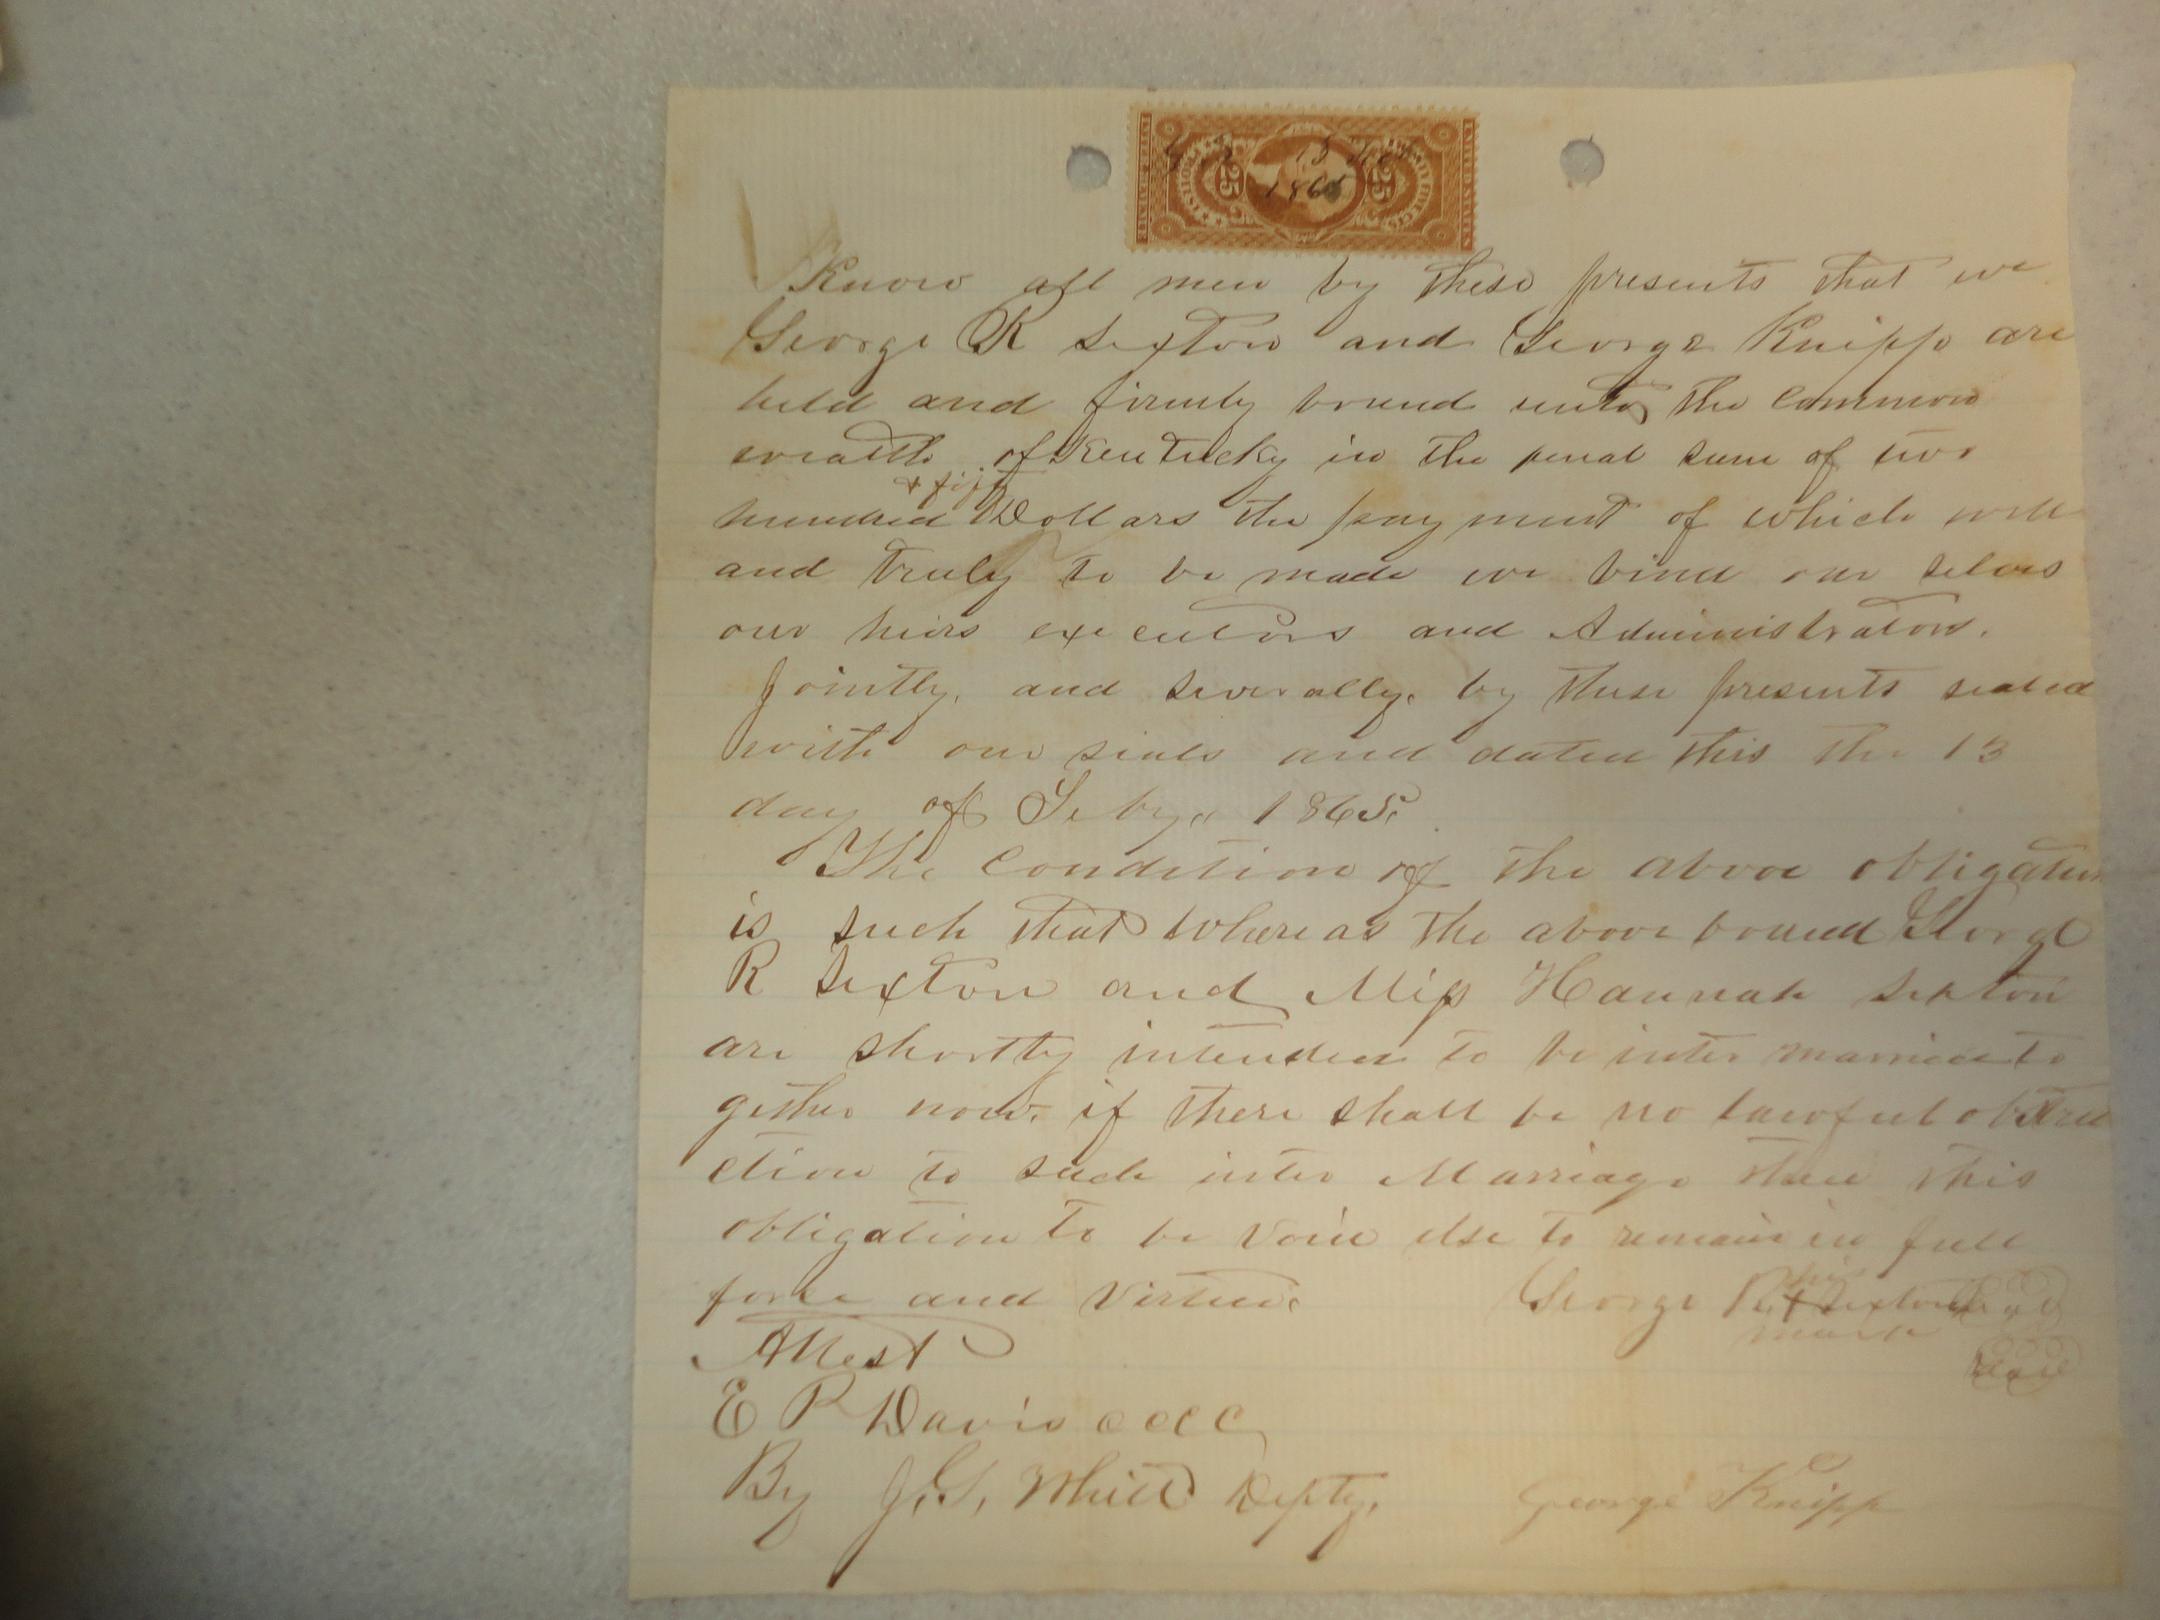 13 Feb
1865
25 25
UNITED STATES
INTER. REVENUE
Know all men by these presents that we
George R Sexton and George Knipp are
held and firmly bound unto the common
wealth of Kentucky in the penal sum of two
+ fifty
hundred Dollars the payment of which well
and truly to be made we bind our selves
our heirs executors and Administrators.
Jointly, and severally, by these presents sealed
with our seals and dated this the 13
day of Feby. 1865.
The condition of the above obligation
is such that whereas the above bound George
R Sexton and Miss Hannah Sexton
are shortly intended to be inter married to
gether now. if there shall be no lawful obstru
ction to such inter Marriage then this
obligation to be void else to remain in full
force and virtue.
his
George R + Sexton Seal
mark
Seal
Attest
E P Davis CCCC
By J. S. Whitt Depty.
George Knipp